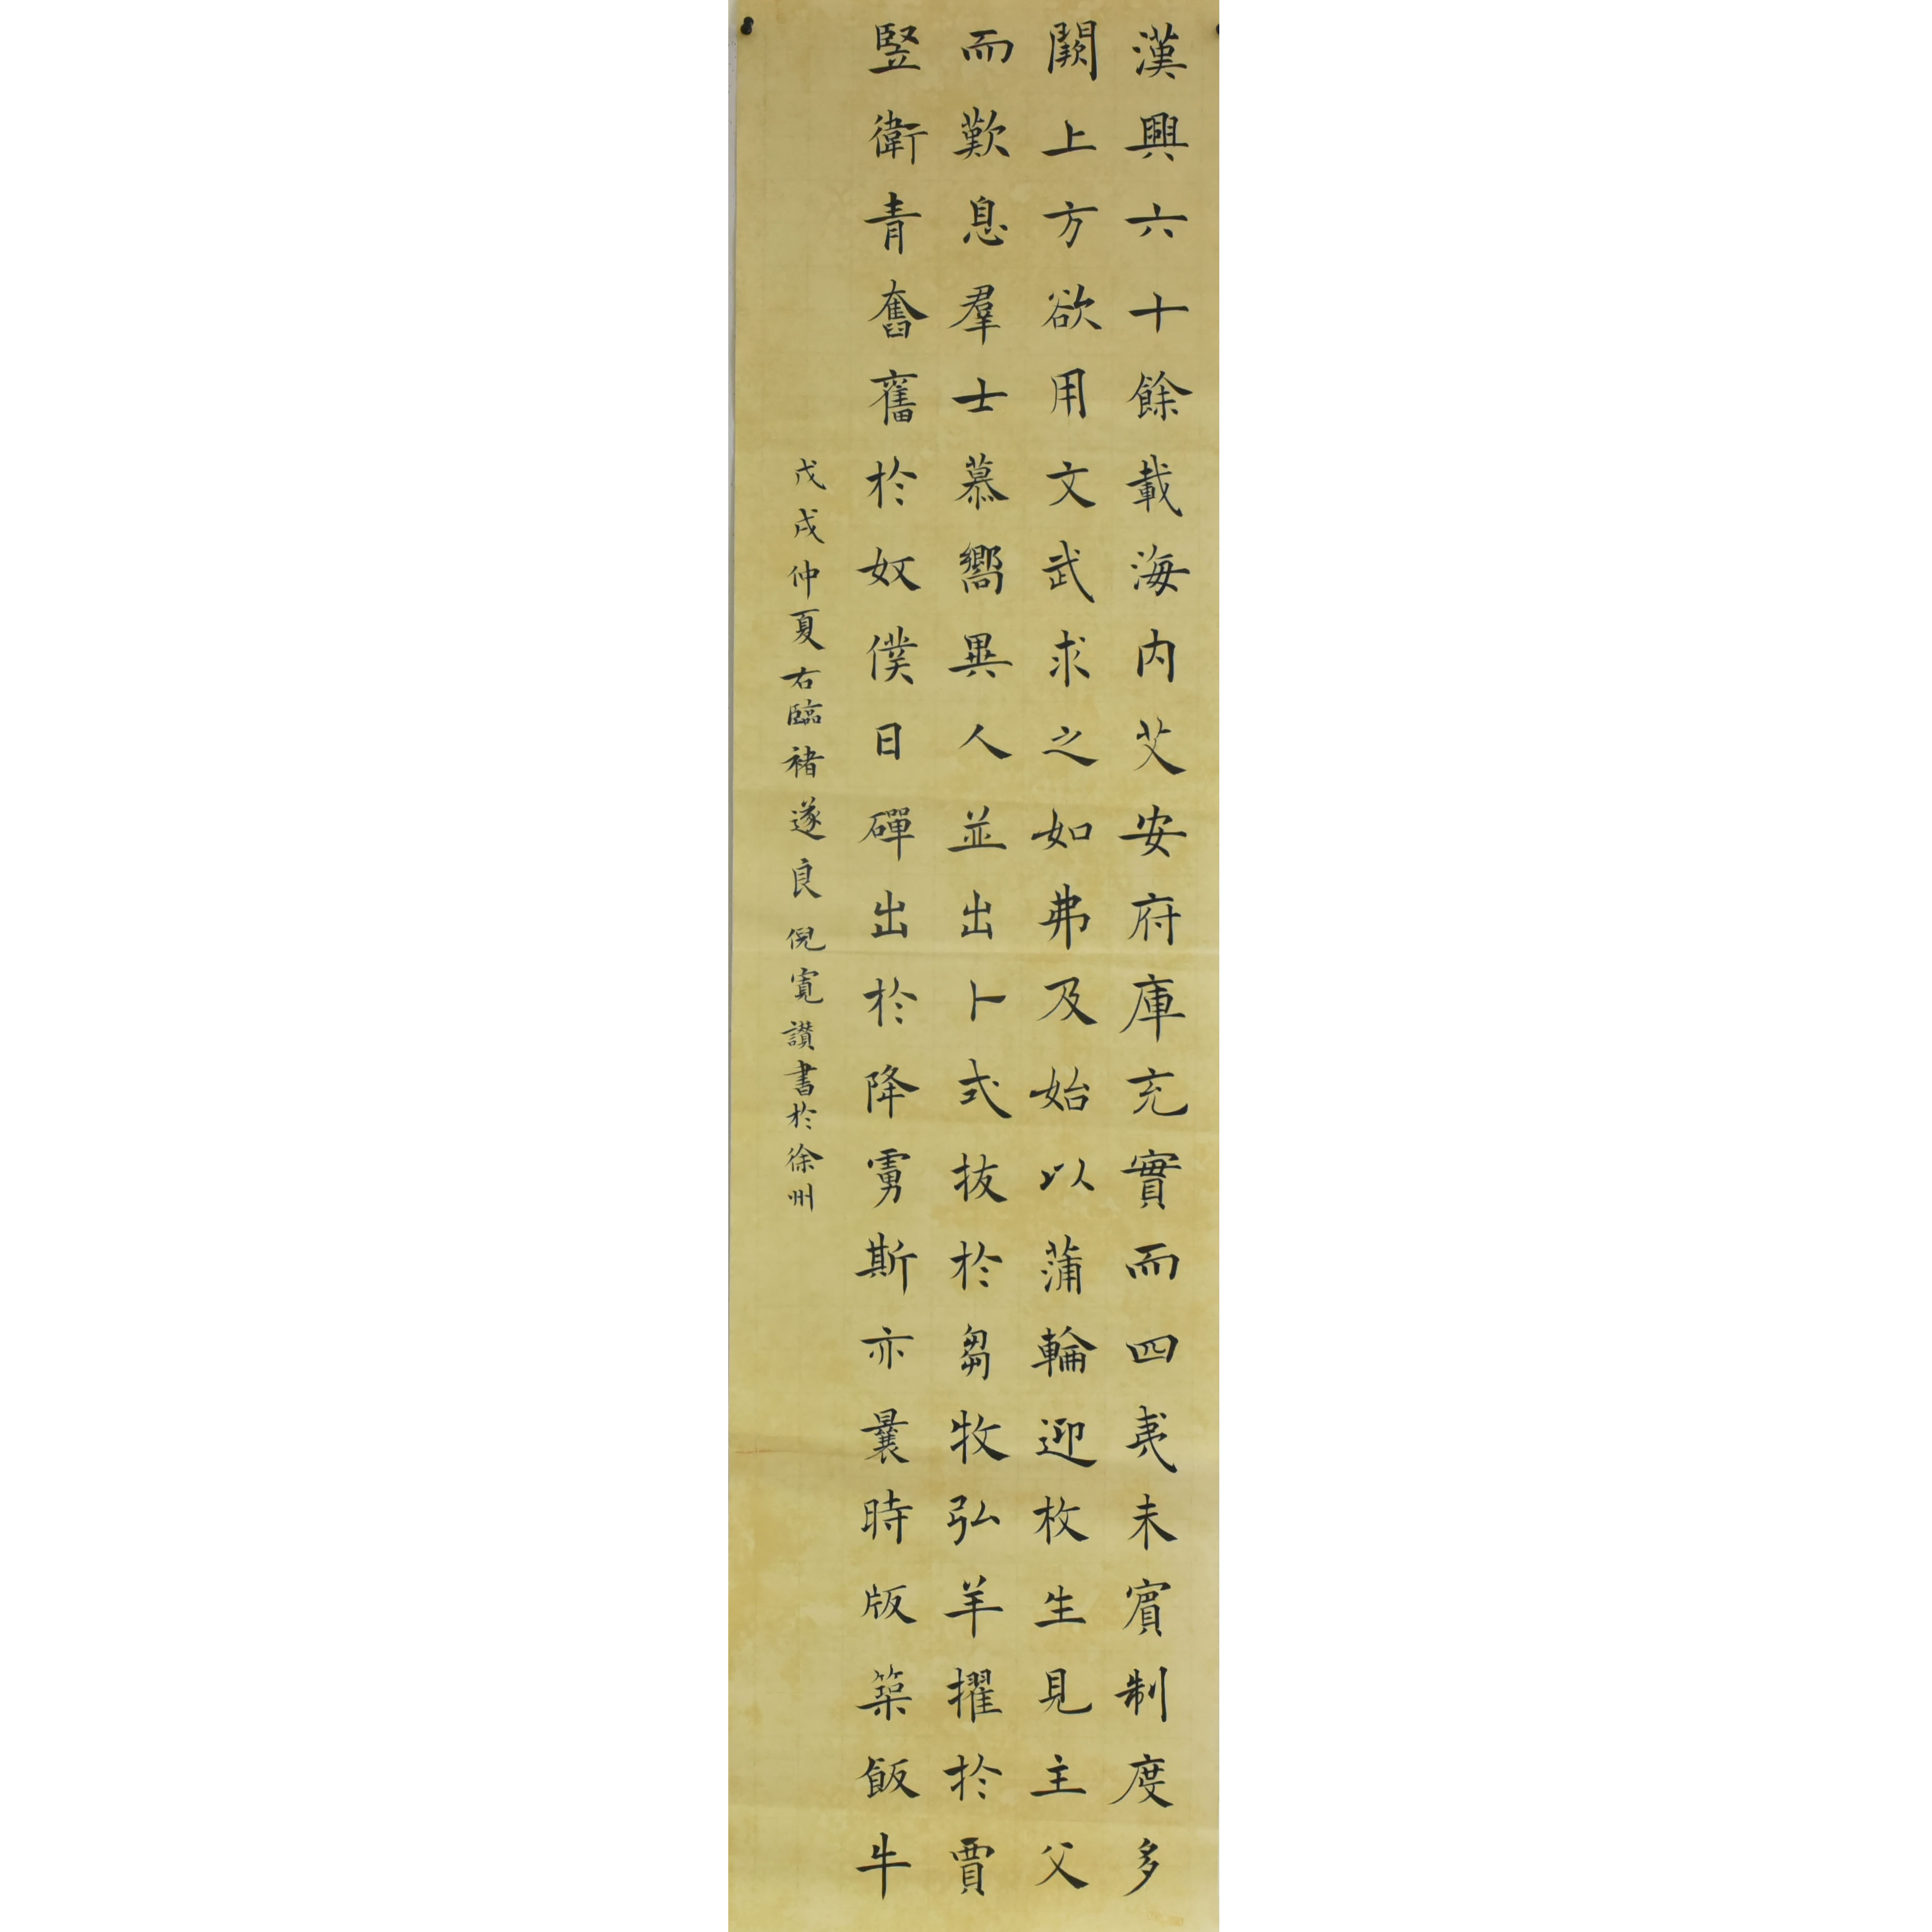 漢興六十餘載海内艾安府庫充實而四夷未賓制度多
闕上方欲用文武求之如弗及始以蒲輪迎枚生見主父
而歎息羣士慕嚮異人並出卜式拔於芻牧弘羊擢於賈
竪衛青奮舊於奴僕日磾出於降虜斯亦曩時版築飯牛
戊戌仲夏右臨褚遂良倪寬讚書於徐州